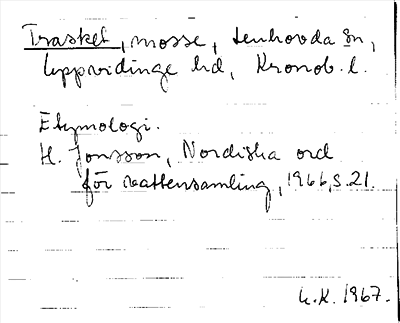 Trasket, mosse, Lenhovda sn,
Uppvidinge hd, Kronob. l.
Etymologi.
H. Jonsson, Nordiska ord
för vattensamling, 1966, s. 21.
G.K. 1967.